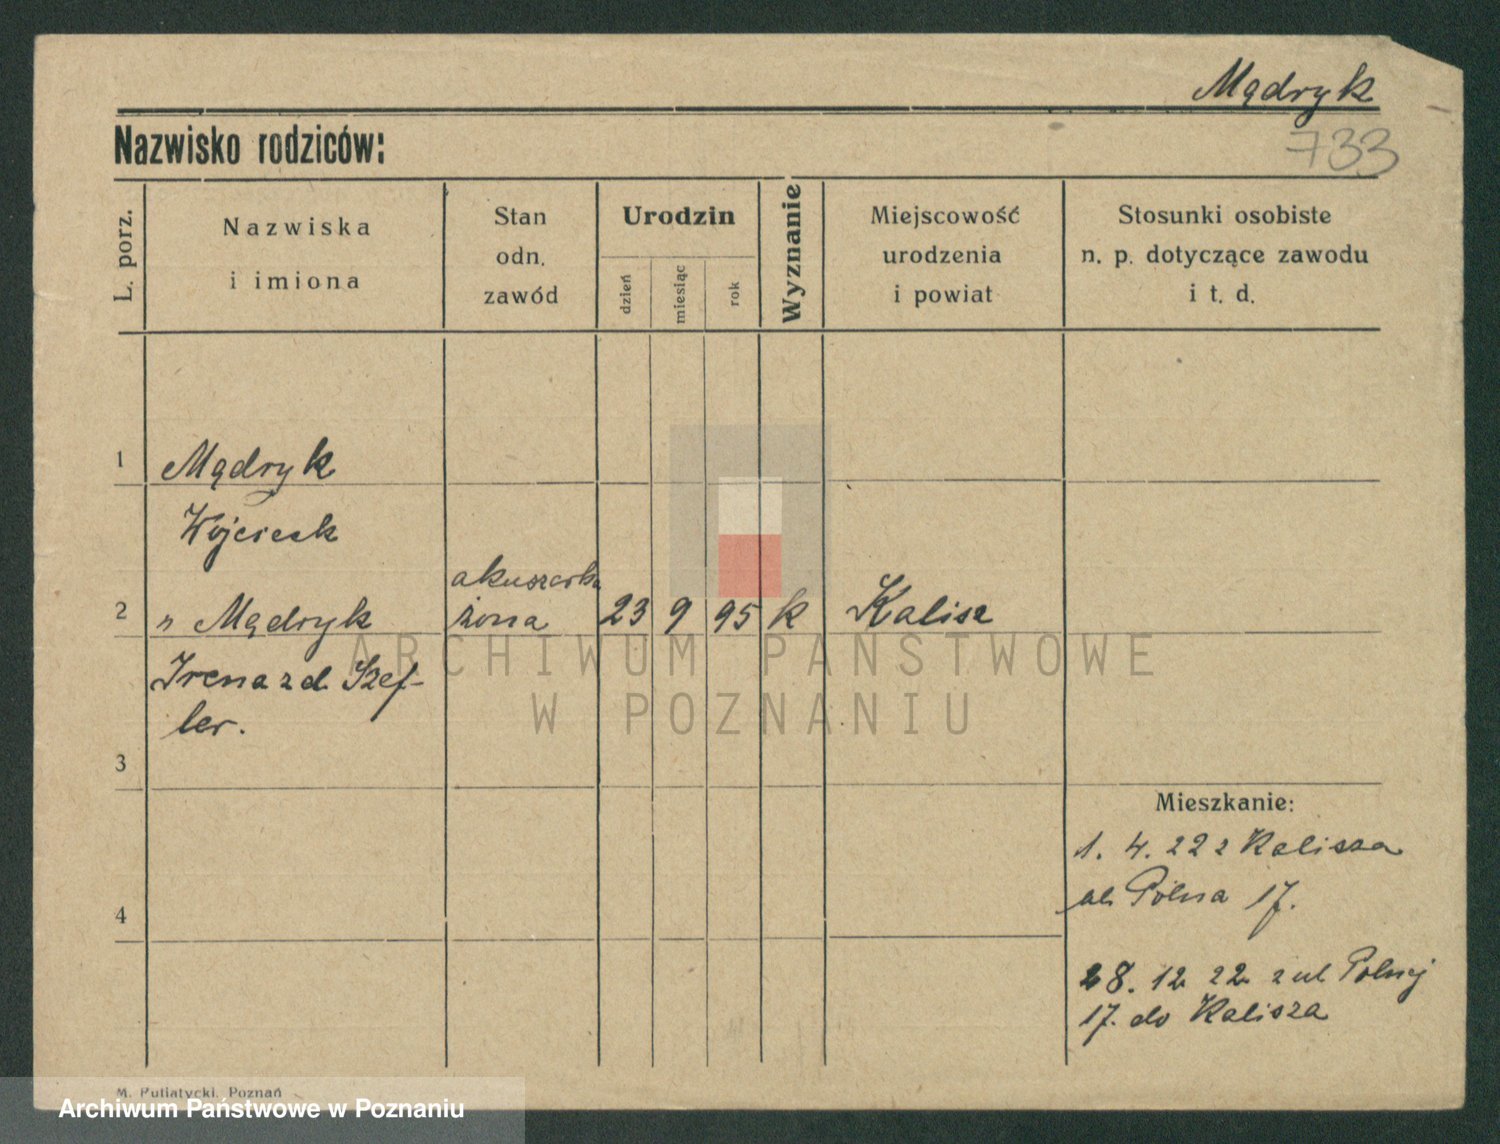 Mądryk
733
Nazwisko rodziców:
L. porz.
Nazwiska
i imiona
Stan
odn.
zawód
Urodzin
dzień
miesiąc
rok
Wyznanie
Miejscowość
urodzenia
i powiat
Stosunki osobiste
n. p. dotyczące zawodu
i t. d.
1
Mądryk
Wojciech
akuszerka
2
" Mądryk
żona
23 9 95 k
Kalisz
Irena z d. Szef-
ler.
ARCHIWUM PAŃSTWOWE
W POZNANIU
3
Mieszkanie:
1. 4. 22 z Kalisza
ul. Polna 17.
4
28. 12 22 z ul Polnej
17. do Kalisza
M. Putiatycki, Poznań
Archiwum Państwowe w Poznaniu